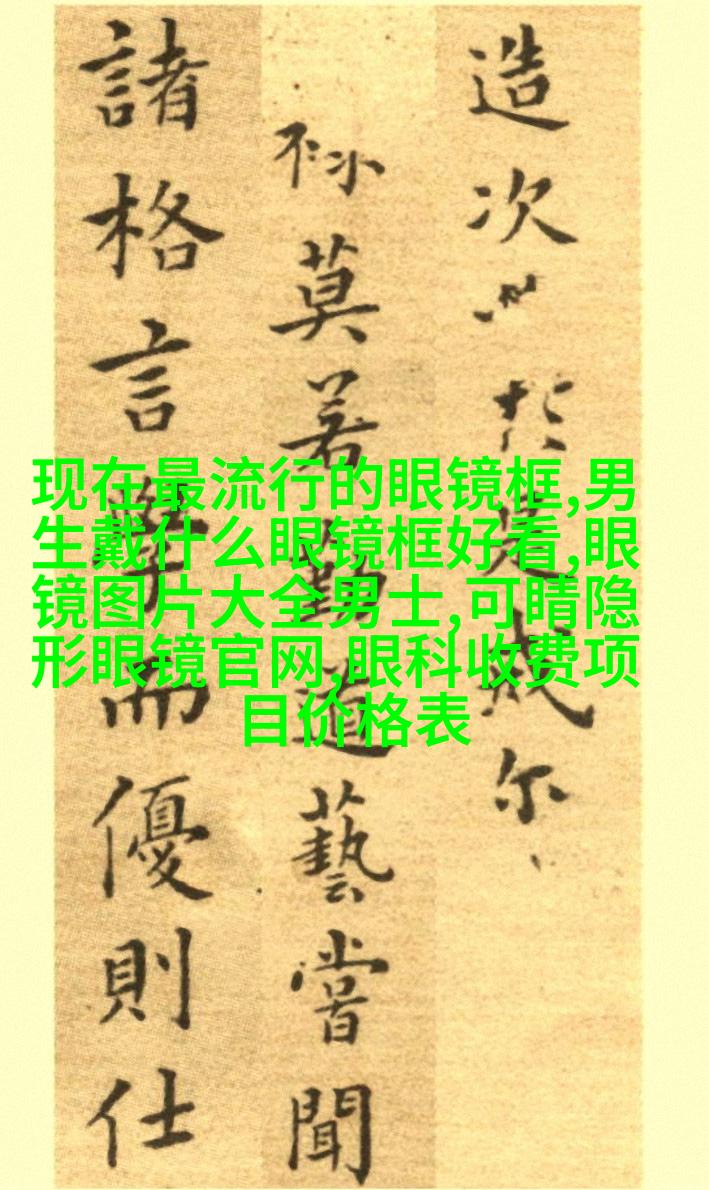 现在最流行的眼镜框,男
生戴什么眼镜框好看,眼
镜图片大全男士,可睛隐
形眼镜官网,眼科收费项
目价格表
造次於是尔
莫若勤道藝嘗聞
諸格言學而優則仕